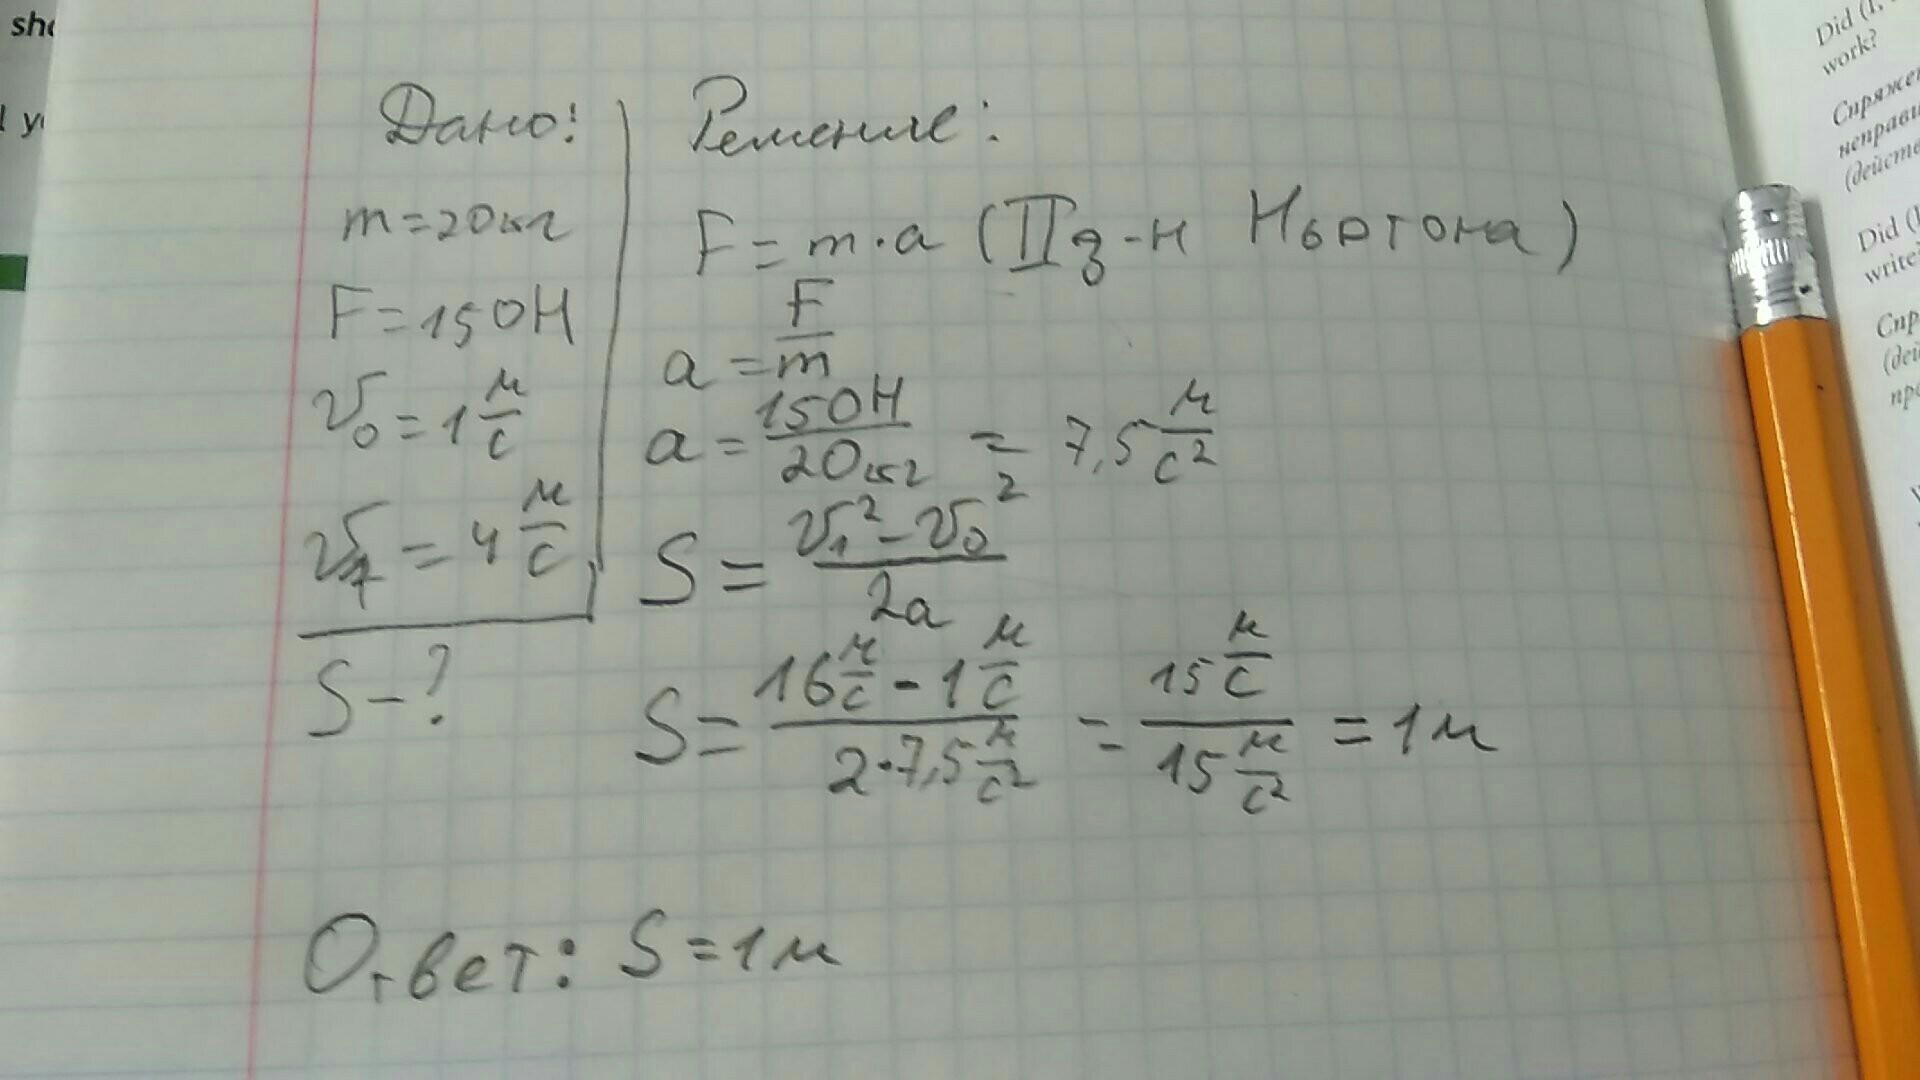 Дано:
m=20кг
F=150Н
v₀=1 м/с
v₁=4 м/с
S-?
Решение:
F=m·a (II з-н Ньютона)
a=F/m
a=150Н/20кг=7,5 м/с²
S=(v₁²-v₀²)/2a
S=(16 м/с-1 м/с)/(2·7,5 м/с²)=15 м/с/15 м/с²=1м
Ответ: S=1м
Did (I,
work?
неправи
(дейст
Did (I
write?